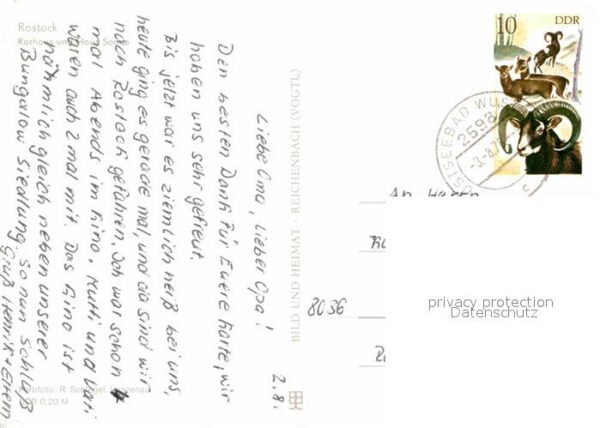 Rostock
Rathaus und Haus Sonne
2.8.
Liebe Oma, Lieber Opa!
Den besten Dank für Euere Karte, wir
haben uns sehr gefreut.
Bis jetzt war es ziemlich heiß bei uns,
heute ging es gerade mal, und da sind wir
nach Rostock gefahren. Ich war schon 4
mal Abends im Kino. Mutti und Vati
waren auch 2 mal mit. Das Kino ist
nämlich gleich neben unserer
Bungalow Siedlung. So nun Schluß
Gruß Henrik + Eltern
Farbfoto: R.
DDR 0,20 M
BILD UND HEIMAT · REICHENBACH (VOGTL)
10 DDR
OSTSEEBAD WUS
2598
-3.-8.7
c
An
8036
privacy protection
Datenschutz